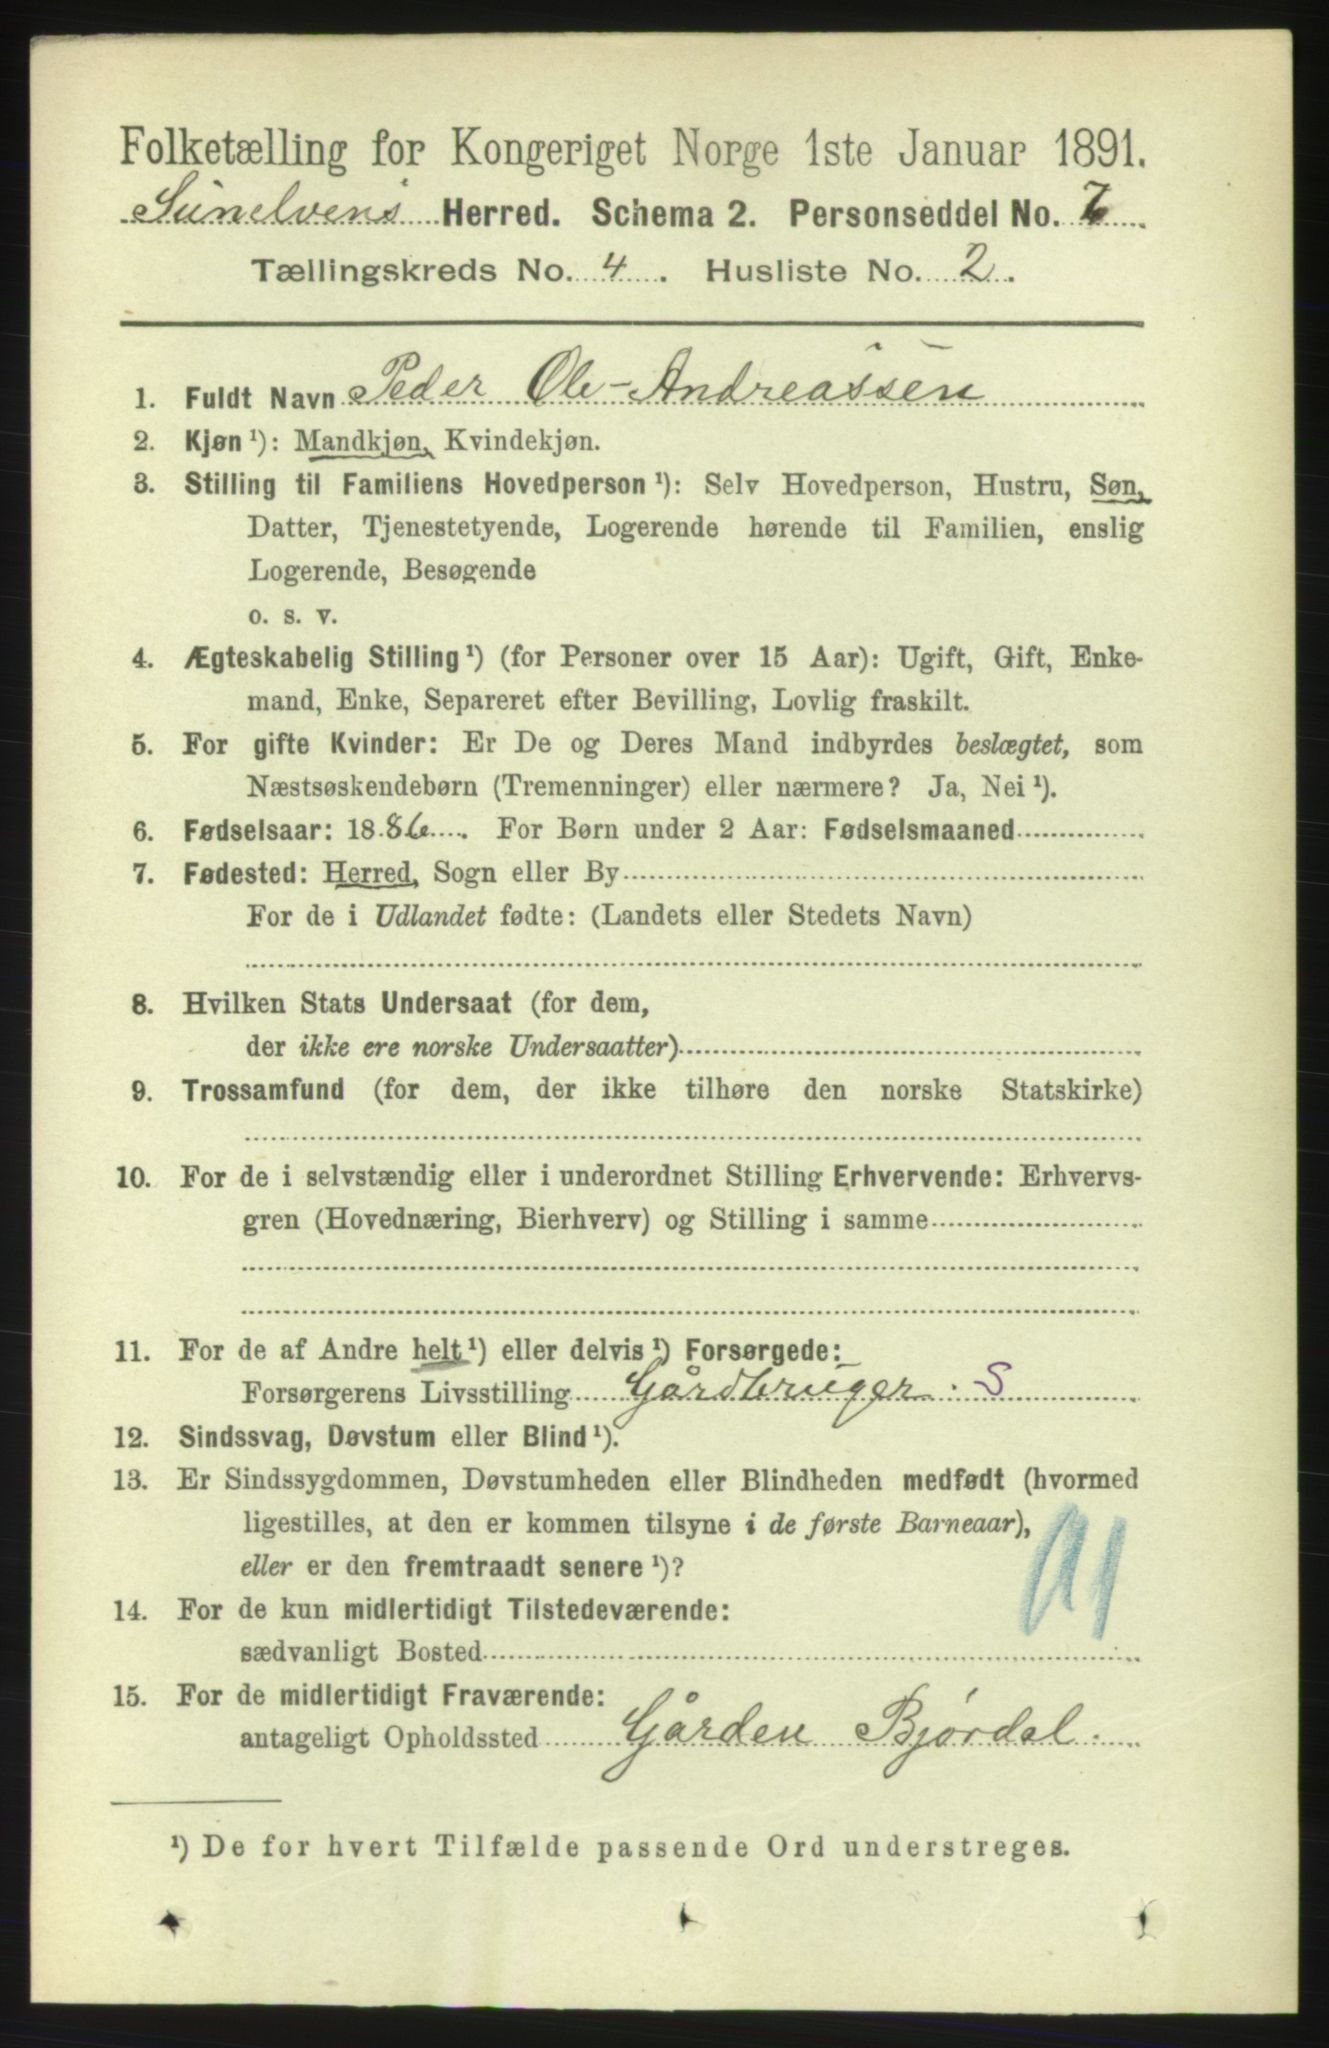 Folketælling for Kongeriget Norge 1ste Januar 1891.
Sunelvens Herred. Schema 2. Personseddel No. 7
Tællingskreds No. 4. Husliste No. 2.
1. Fuldt Navn Peder Ole Andreassen
2. Kjøn ¹): Mandkjøn, Kvindekjøn.
3. Stilling til Familiens Hovedperson ¹): Selv Hovedperson, Hustru, Søn,
Datter, Tjenestetyende, Logerende hørende til Familien, enslig
Logerende, Besøgende
o. s. v.
4. Ægteskabelig Stilling ¹) (for Personer over 15 Aar): Ugift, Gift, Enke-
mand, Enke, Separeret efter Bevilling, Lovlig fraskilt.
5. For gifte Kvinder: Er De og Deres Mand indbyrdes beslægtet, som
Næstsøskendebørn (Tremenninger) eller nærmere? Ja, Nei ¹).
6. Fødselsaar: 1886. For Børn under 2 Aar: Fødselsmaaned
7. Fødested: Herred, Sogn eller By
For de i Udlandet fødte: (Landets eller Stedets Navn)
8. Hvilken Stats Undersaat (for dem,
der ikke ere norske Undersaatter)
9. Trossamfund (for dem, der ikke tilhøre den norske Statskirke)
10. For de i selvstændig eller i underordnet Stilling Erhvervende: Erhvervs-
gren (Hovednæring, Bierhverv) og Stilling i samme
11. For de af Andre helt ¹) eller delvis ¹) Forsørgede:
Forsørgerens Livsstilling Gårdbruger. S
12. Sindssvag, Døvstum eller Blind ¹).
13. Er Sindssygdommen, Døvstumheden eller Blindheden medfødt (hvormed
ligestilles, at den er kommen tilsyne i de første Barneaar),
eller er den fremtraadt senere ¹)?
14. For de kun midlertidigt Tilstedeværende:
sædvanligt Bosted
15. For de midlertidigt Fraværende:
antageligt Opholdssted Gården Bjørdal.
¹) De for hvert Tilfælde passende Ord understreges.